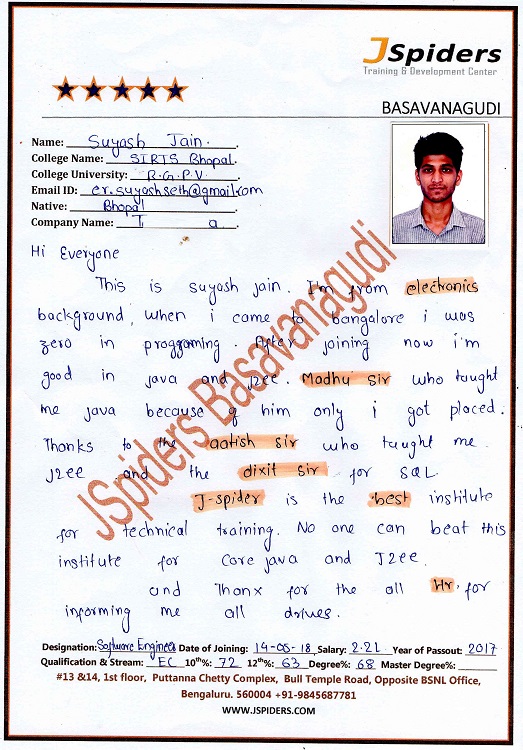 JSpiders
Training & Development Center
BASAVANAGUDI
Name: Suyash Jain.
College Name: SIRTS Bhopal.
College University: R.G.P.V.
Email ID: er.suyashseth@gmail.com
Native: Bhopal
Company Name: T a
Hi Everyone
This is suyash jain. I'm from electronics
background, when i came to bangalore i was
zero in proggaming. After joining now i'm
good in java and j2ee. Madhu sir who taught
me java because of him only i got placed.
Thanks to the aatish sir who taught me
J2ee and the dixit sir for SQL
J-spider is the best institute
for technical training. No one can beat this
institute for Core java and J2ee.
and Thanx for the all Hr for
informing me all drives.
JSpiders Basavanagudi
Designation: Software Engineer Date of Joining: 14-05-18 Salary: 2.2L Year of Passout: 2017
Qualification & Stream: EC 10th%: 72 12th%: 63 Degree%: 68 Master Degree%:
#13 &14, 1st floor, Puttanna Chetty Complex, Bull Temple Road, Opposite BSNL Office,
Bengaluru. 560004 +91-9845687781
WWW.JSPIDERS.COM